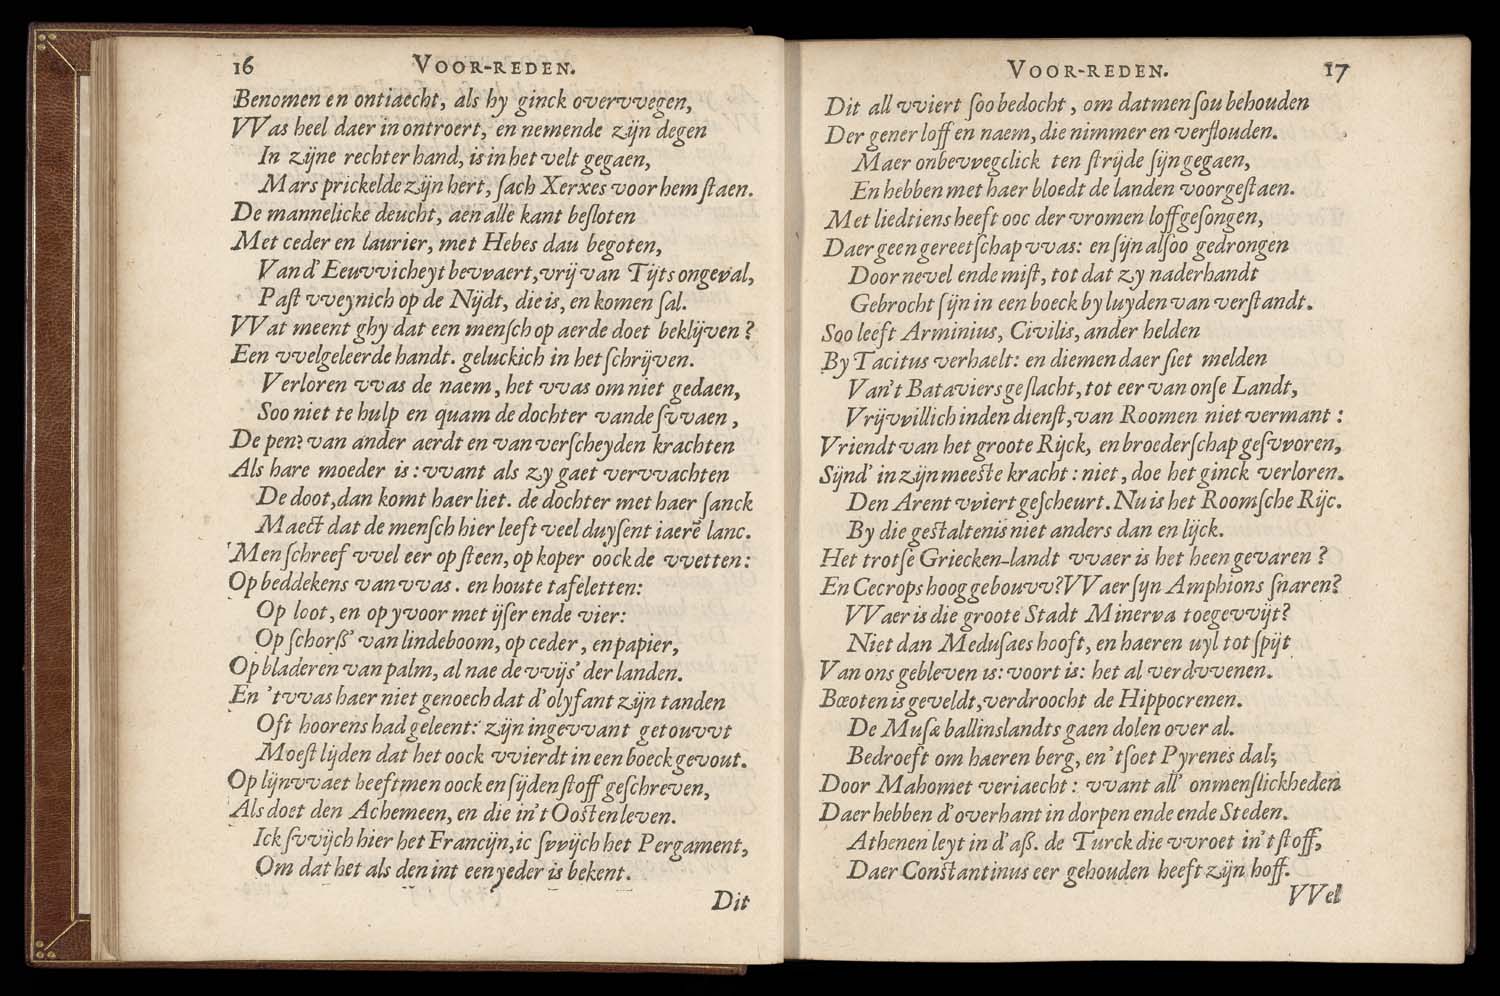 16 VOOR-REDEN.
Benomen en ontiaecht, als hy ginck overvvegen,
VVas heel daer in ontroert, en nemende zijn degen
In zijne rechter hand, is in het velt gegaen,
Mars prickelde zijn hert, ſach Xerxes voor hem ſtaen.
De mannelicke deucht, aen alle kant beſloten
Met ceder en laurier, met Hebes dau begoten,
Van d'Eeuvvicheyt bevvaert, vrij van Tijts ongeval,
Paſt vveynich op de Nijdt, die is, en komen ſal.
VVat meent ghy dat een menſch op aerde doet beklijven?
Een vvelgeleerde handt. geluckich in het ſchrijven.
Verloren vvas de naem, het vvas om niet gedaen,
Soo niet te hulp en quam de dochter vande ſvvaen,
De pen: van ander aerdt en van verſcheyden krachten
Als hare moeder is: vvant als zy gaet vervvachten
De doot, dan komt haer liet. de dochter met haer ſanck
Maect dat de menſch hier leeft veel duyſent iaerē lanc.
Men ſchreef vvel eer op ſteen, op koper oock de vvetten:
Op beddekens van vvas. en houte tafeletten:
Op loot, en op yvoor met ijſer ende vier:
Op ſchorſs' van lindeboom, op ceder, en papier,
Op bladeren van palm, al nae de vvijs' der landen.
En 't vvas haer niet genoech dat d'olyfant zijn tanden
Oft hoorens had geleent: zijn ingevvant getouvvt
Moeſt lijden dat het oock vvierdt in een boeck gevout.
Op lijnvvaet heeft men oock en ſijden ſtoff geſchreven,
Als doet den Achemeen, en die in't Ooſten leven.
Ick ſvvijch hier het Francijn, ic ſvvijch het Pergament,
Om dat het als den int een yeder is bekent.
Dit
VOOR-REDEN. 17
Dit all vviert ſoo bedocht, om datmen ſou behouden
Der gener loff en naem, die nimmer en verſlouden.
Maer onbevvegclick ten ſtrijde ſijn gegaen,
En hebben met haer bloedt de landen voorgeſtaen.
Met liedtiens heeft ooc der vromen loff geſongen,
Daer geen gereetſchap vvas: en ſijn alſoo gedrongen
Door nevel ende miſt, tot dat zy naderhandt
Gebrocht ſijn in een boeck by luyden van verſtandt.
Soo leeft Arminius, Civilis, ander helden
By Tacitus verhaelt: en diemen daer ſiet melden
Van't Bataviers geſlacht, tot eer van onſe Landt,
Vrijvvillich inden dienſt, van Roomen niet vermant:
Vriendt van het groote Rijck, en broederſchap geſvvoren,
Sijnd' in zijn meeſte kracht: niet, doe het ginck verloren.
Den Arent vviert geſcheurt. Nu is het Roomſche Rijc.
By die geſtaltenis niet anders dan en lijck.
Het trotſe Griecken-landt vvaer is het heen gevaren?
En Cecrops hoog gebouvv? VVaer ſijn Amphions ſnaren?
VVaer is die groote Stadt Minerva toegevvijt?
Niet dan Meduſaes hooft, en haeren uyl tot ſpijt
Van ons gebleven is: voort is: het al verdvvenen.
Bœoten is geveldt, verdroocht de Hippocrenen.
De Muſæ ballinslandts gaen dolen over al.
Bedroeft om haeren berg, en 't ſoet Pyrenes dal;
Door Mahomet veriaecht: vvant all' onmenſlickheden
Daer hebben d'overhant in dorpen ende ende Steden.
Athenen leyt in d'aſs. de Turck die vvroet in't ſtoff,
Daer Conſtantinus eer gehouden heeft zijn hoff.
VVel